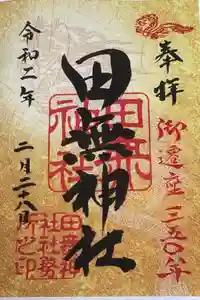 奉拝
御遷座三五〇年
田無神社
田無神社
令和二年
二月二十八日
田無神
社社務
所之印